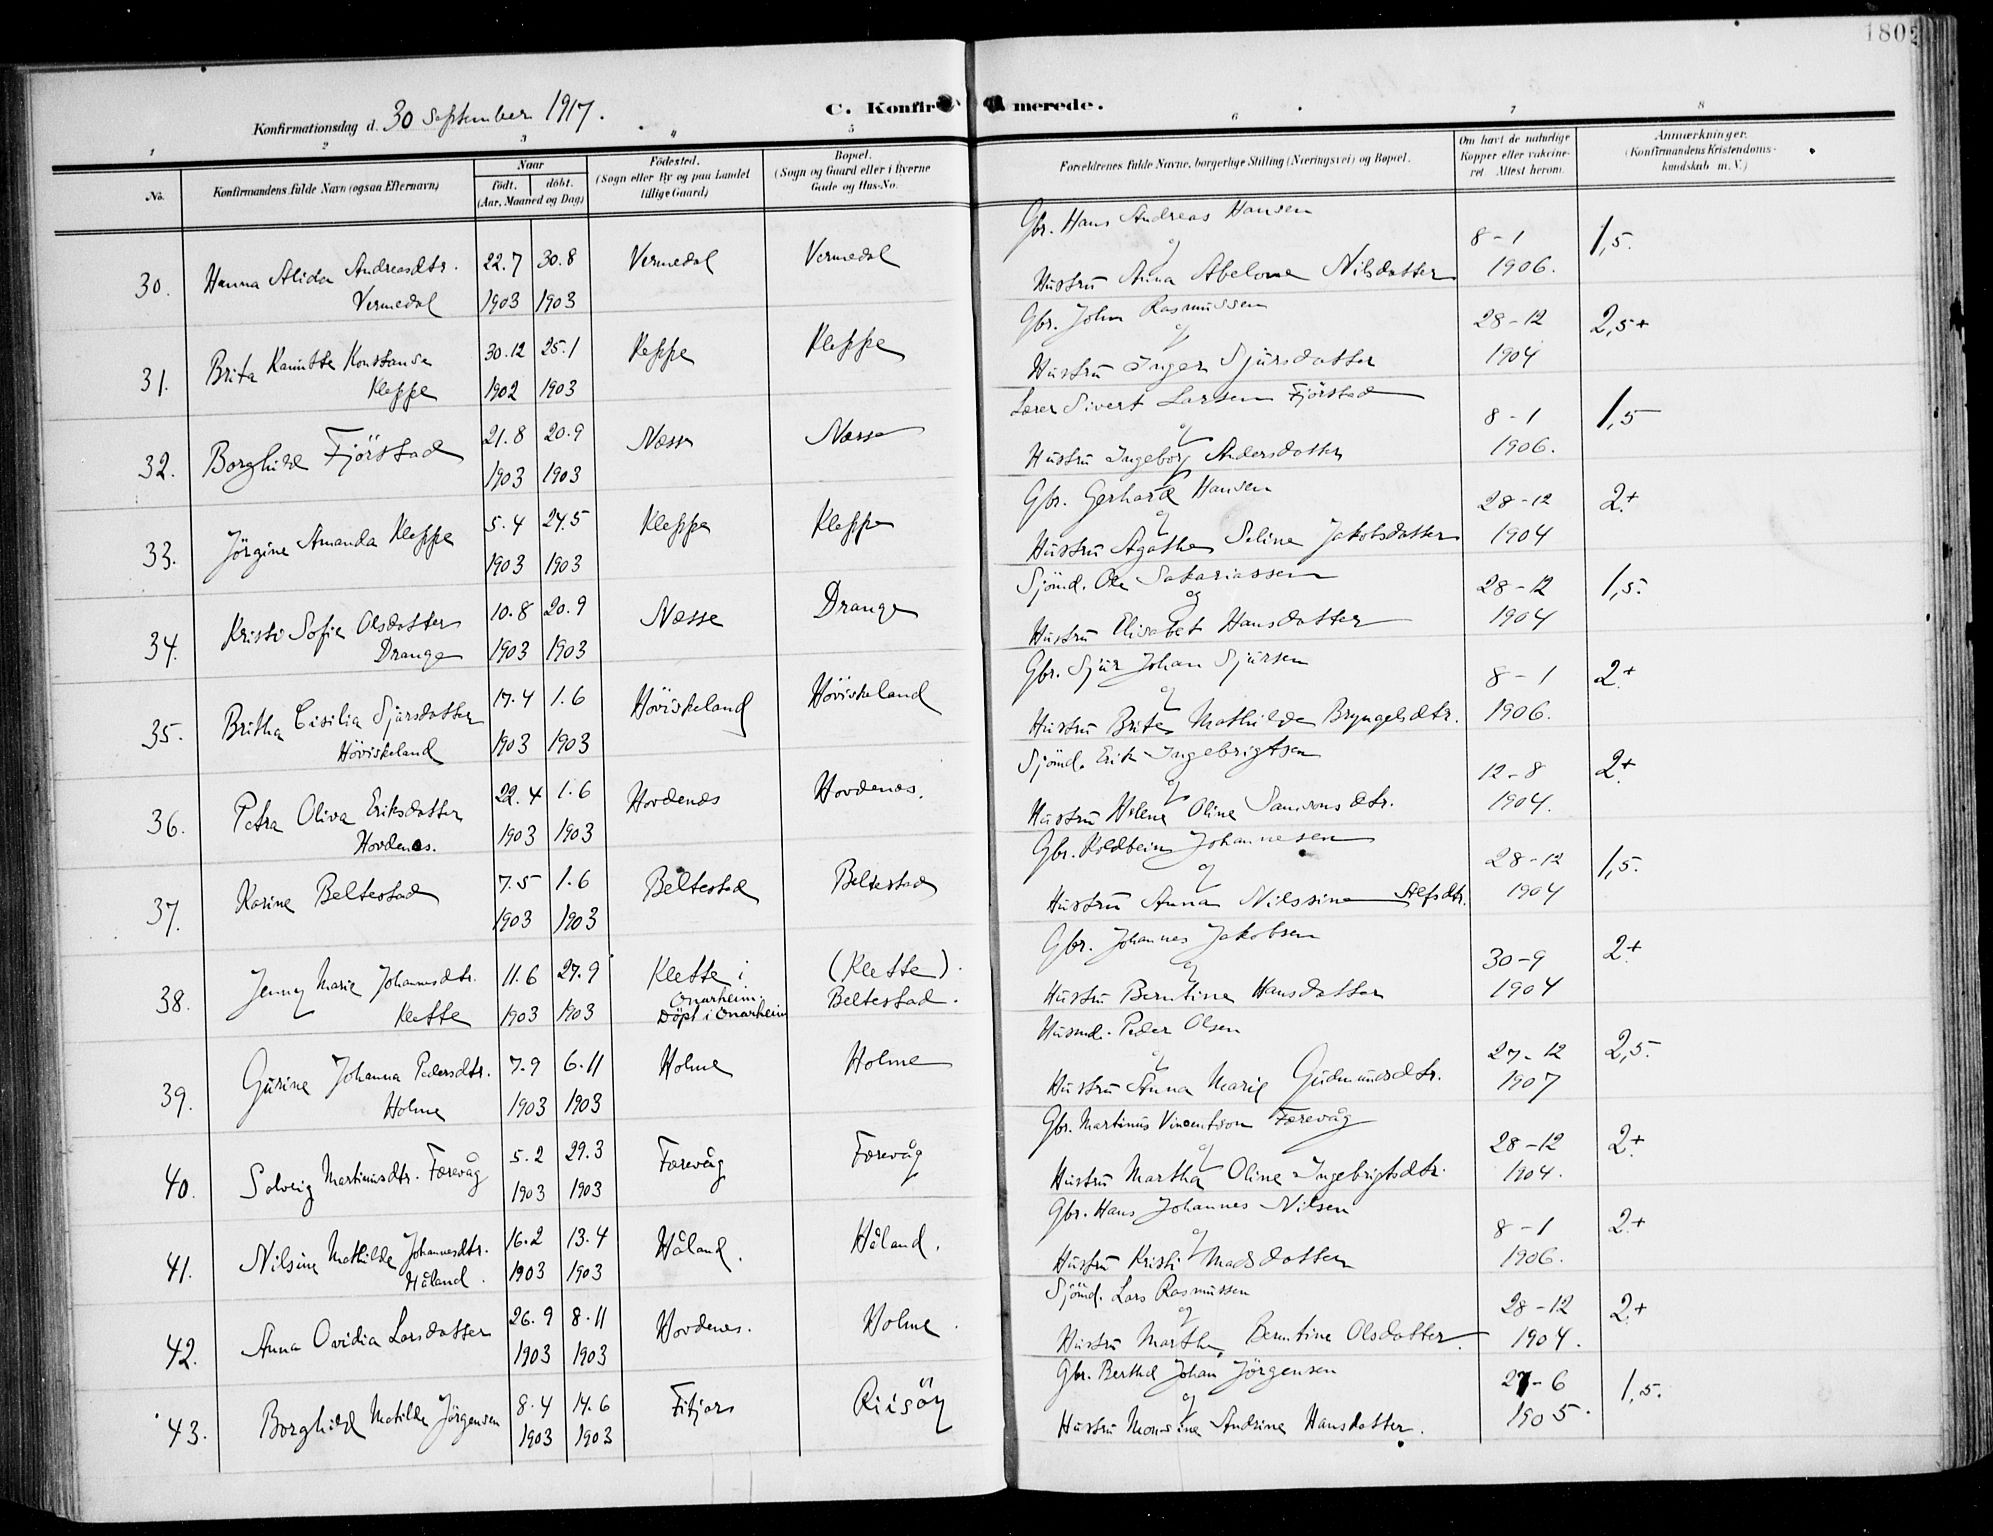 180
Konfirmationsdag d. 30 September 1917.
C. Konfirmerede.
1 2 3 4 5 6 7 8
No.
Konfirmandens fulde Navn (ogsaa Efternavn)
Naar
födt. döbt.
(Aar, Maaned og Dag)
Födested.
(Sogn eller By og paa Landet
tillige Gaard)
Bopæl.
(Sogn og Gaard eller i Byerne
Gade og Hus-No.
Forældrenes fulde Navne, borgerlige Stilling (Næringsvei) og Bopæl.
Om havt de naturlige
Kopper eller vakcine-
ret. Attest herom.
Anmærkninger.
(Konfirmandens Kristendoms-
kundskab m. V.)
30. Hanna Alida Andreasdtr. 22.7 30.8 Vermedal Vermedal Gbr. Hans Andreas Hansen 8-1 1,5.
Vermedal 1903 1903 og Hustru Anna Abelone Nilsdatter 1906.
31. Brita Kamitta Konstanse 30.12 25.1 Keppe Kleppe Gbr. John Rasmussen 28-12 2,5+
Kleppe 1902 1903 og Hustru Inger Sjursdatter 1904
32. Borghild Fjörstad 21.8 20.9 Næsse Næsse Lærer Sivert Larsen Fjörstad 8-1 1,5
1903 1903 og Hustru Ingeborg Andersdatter 1906.
33. Jörgine Amanda Kleppe 5.4 24.5 Kleppe Kleppe Gbr. Gerhard Hansen 28-12 2+
1903 1903 og Hustru Agathe Seline Jakobsdatter 1904
34. Kristi Sofie Olsdatter 10.8 20.9 Næsse Drange Sjömd. Ole Sakariassen 28-12 1,5.
Drange 1903 1903 og Hustru Elisabet Hansdatter 1904
35. Britha Cisilia Sjursdatter 17.4 1.6 Höviskeland Höviskeland Gbr. Sjur Johan Sjursen 8-1 2+
Höviskeland 1903 1903 og Hustru Brite Mathilde Bryngelsdtr. 1906.
36. Petra Oliva Eriksdatter 22.4 1.6 Hovdenes Hovdenes. Sjömd. Erik Ingebrigtsen 12-8 2+
Hovdenes. 1903 1903 og Hustru Helene Oline Samsonsdtr. 1904.
37. Karine Beltestad 7.5 1.6 Beltestad Beltestad Gbr. Koldbein Johannesen 28-12 1,5.
1903 1903 og Hustru Anna Nilssine Alfsdtr. 1904
38. Jenny Marie Johannesdtr. 11.6 27.9 Klette i (Klette). Gbr. Johannes Jakobsen 30-9 2+
Klette 1903 1903 Onarheim. Döpt i Onarheim Beltestad. og Hustru Berntine Hansdatter 1904
39. Gurine Johanna Pedersdtr. 7.9 6.11 Holme Holme Husmd. Peder Olsen 27-12 2,5.
Holme 1903 1903 og Hustru Anna Marie Gudmundsdtr. 1907
40. Solveig Martinusdtr. Færevåg 5.2 29.3 Færevåg Færevåg Gbr. Martinus Vincentson Færevåg 28-12 2+
1903 1903 og Hustru Martha Oline Ingebrigtsdtr. 1904.
41. Nilsine Mathilde Johannesdtr. 16.2 13.4 Håland. Håland. Gbr. Hans Johannes Nilsen 8-1 2+
Håland. 1903 1903 og Hustru Kristi Madsdatter 1906.
42. Anna Ovidia Larsdatter 26.9 8.11 Hovdenes. Holme. Sjömd. Lars Rasmussen 28-12 2+
1903 1903 og Hustru Marthe Berntine Olsdatter. 1904.
43. Borghild Matilde Jörgensen 8.4 14.6 Fitjar Riisöy Gbr. Berthel Johan Jörgensen 27-6 1,5.
1903 1903 og Hustru Monsine Andrine Hansdatter. 1905.